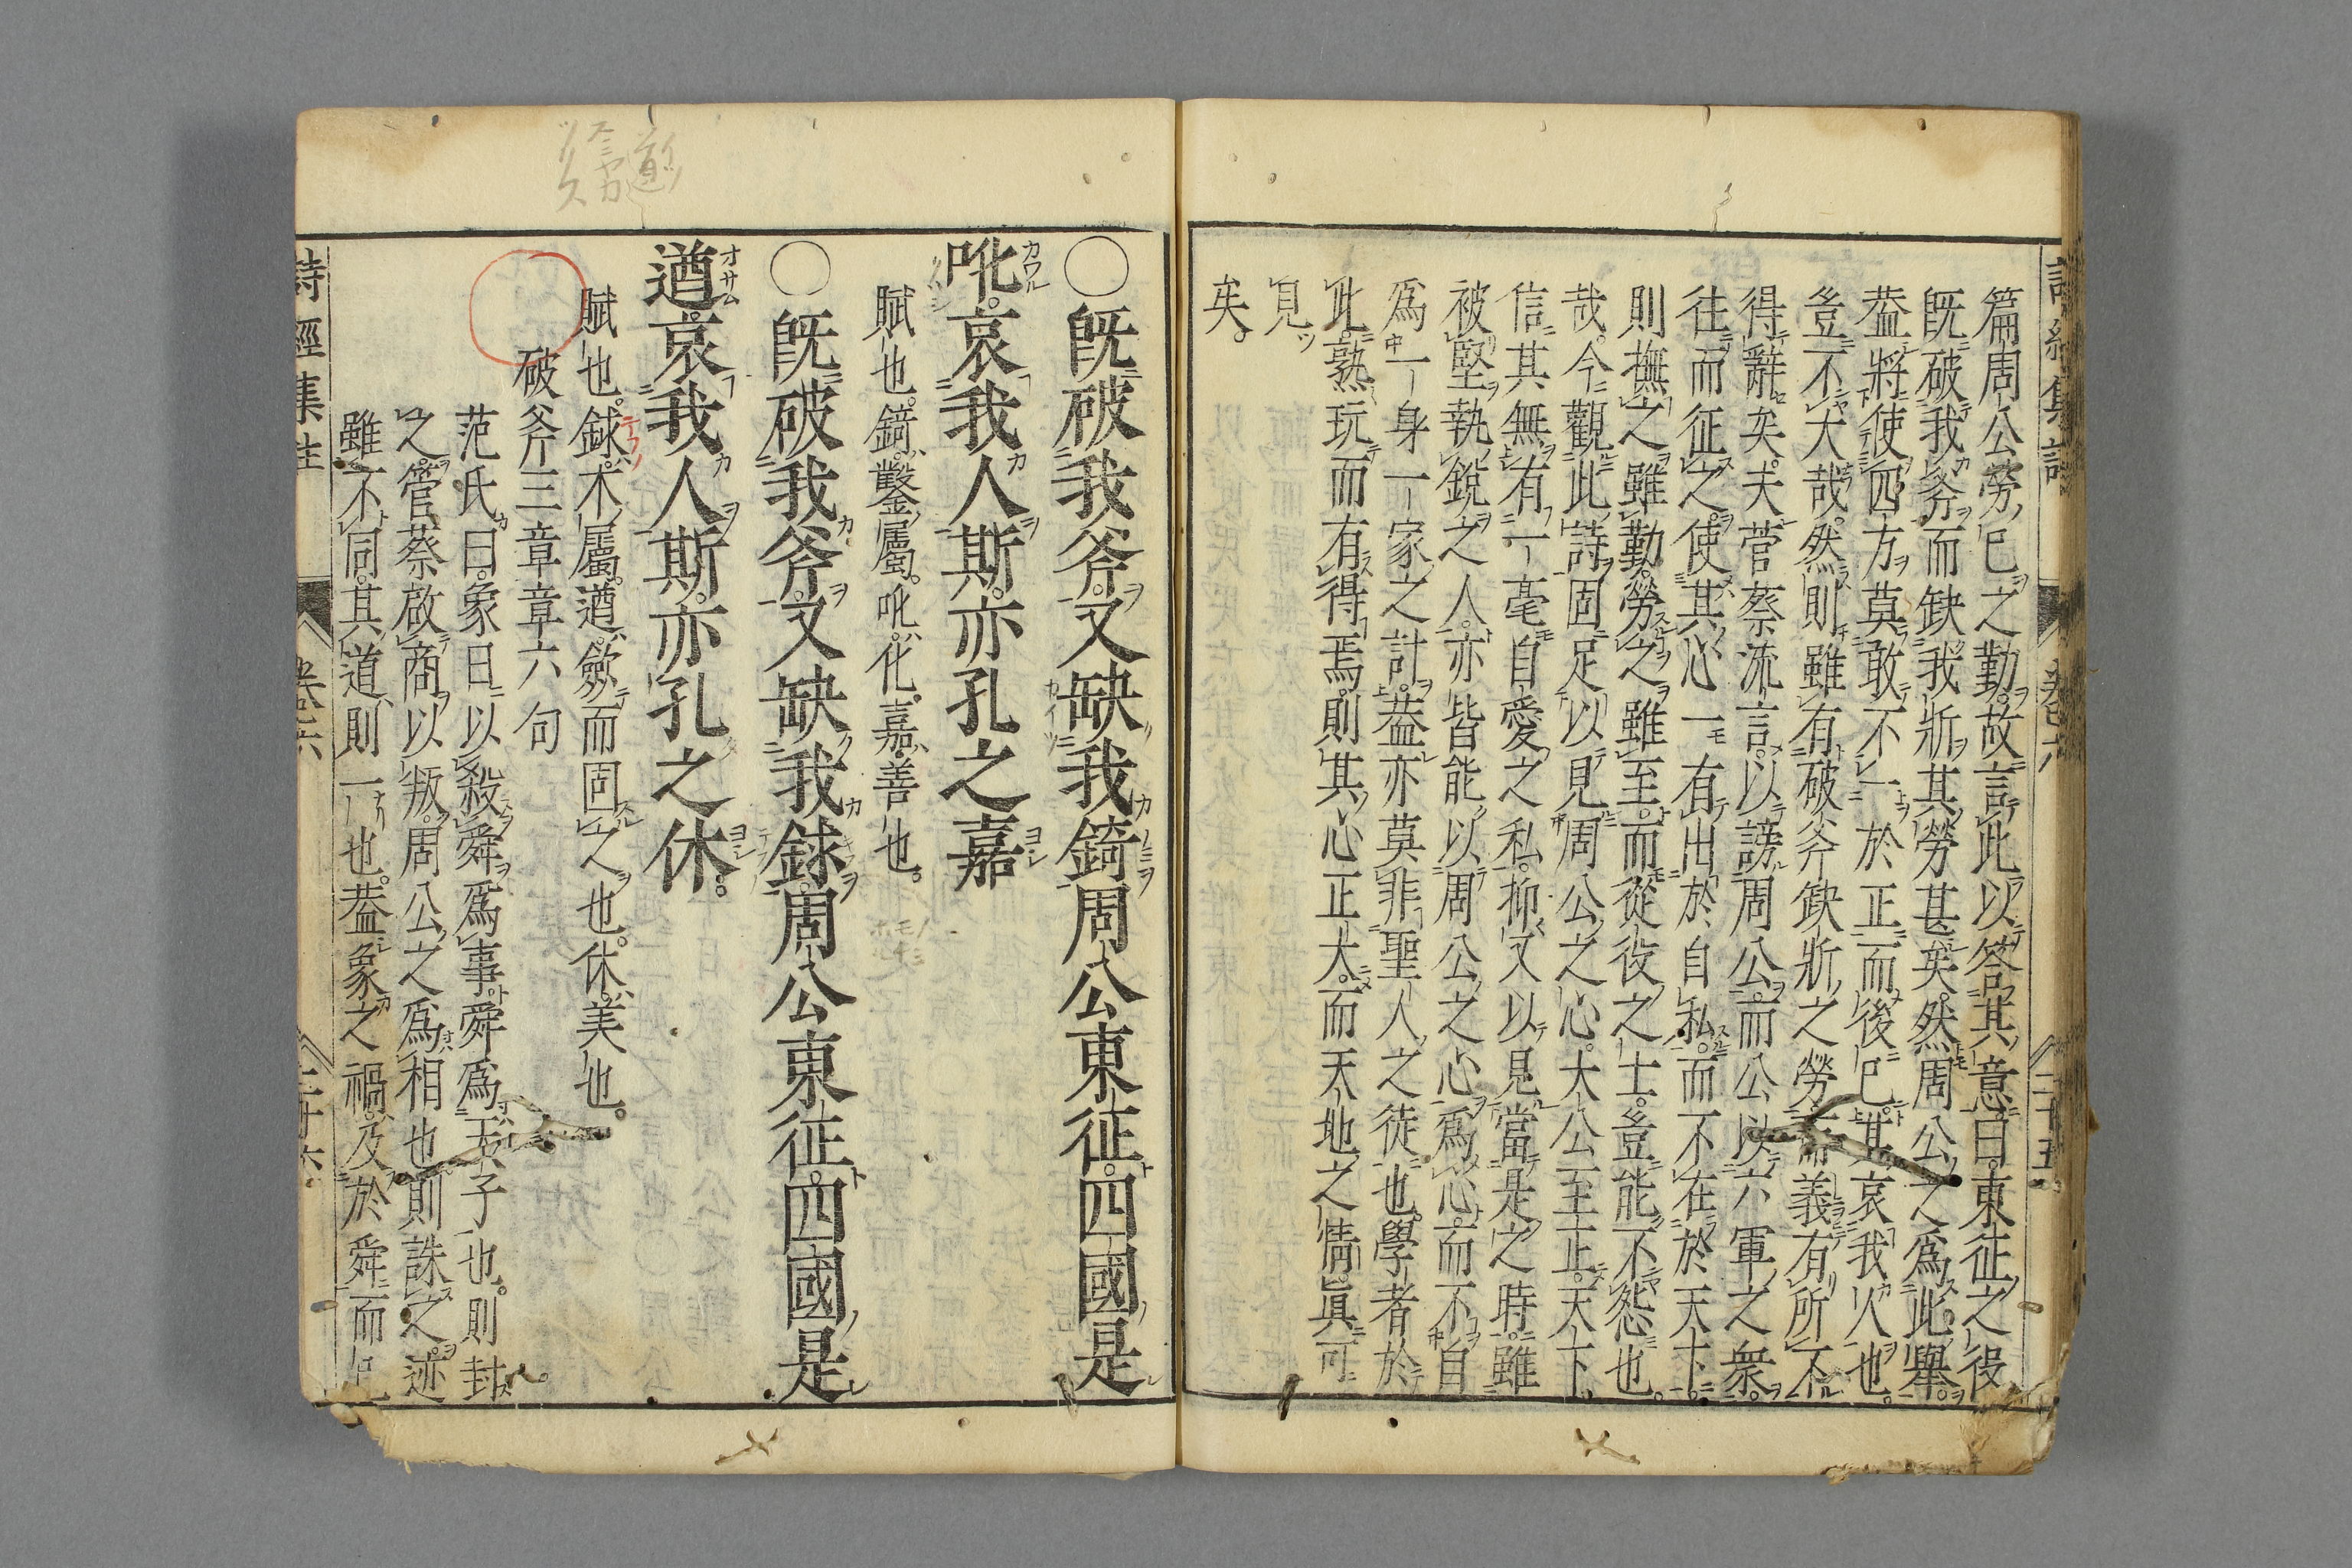 篇周公勞巳之勤故言此以答其意曰東征之役
既破我斧而缺我斨其勞甚矣然周公之爲此舉
葢將使四方莫敢不一於正而後巳其哀我人也
豈不大哉然則雖有破斧缺斨之勞而義有所不
得辭矣夫菅蔡流言以謗周公而公以六軍之衆
往而征之使其心一有出於自私而不在於天下
則撫之雖勤勞之雖至而從役之士豈能不怨也
哉今觀此詩固足以見周公之心大公至正天下
信其無有一毫自愛之私抑又以見當是之時雖
被堅執銳之人亦皆能以周公之心爲心而不自
爲一身一家之計葢亦莫非聖人之徒也學者於
此熟玩而有得焉則其心正大而天地之情眞可
見
矣
卷六
二十五
〇既破我斧又缺我錡周公東征四國是
吪哀我人斯亦孔之嘉
賦也錡鑿屬吪化嘉善也
〇既破我斧又缺我銶周公東征四國是
遒哀我人斯亦孔之休
賦也銶木屬遒歛而固之也休美也
破斧三章章六句
范氏曰象日以殺舜爲事舜爲天子也則封
之管蔡啟商以叛周公之爲相也則誅之迹
雖不同其道則一也葢象之禍及於舜而已
詩經集註
卷六
二十六
遒